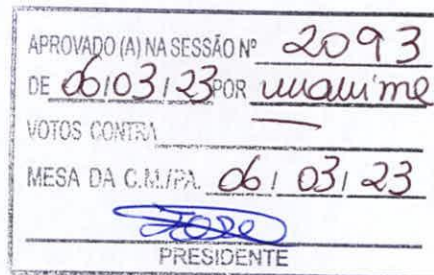 APROVADO (A) NA SESSÃO Nº 2093
DE 06/03/23 POR unanime
VOTOS CONTRA —
MESA DA C.M./PA. 06 / 03 / 23
PRESIDENTE